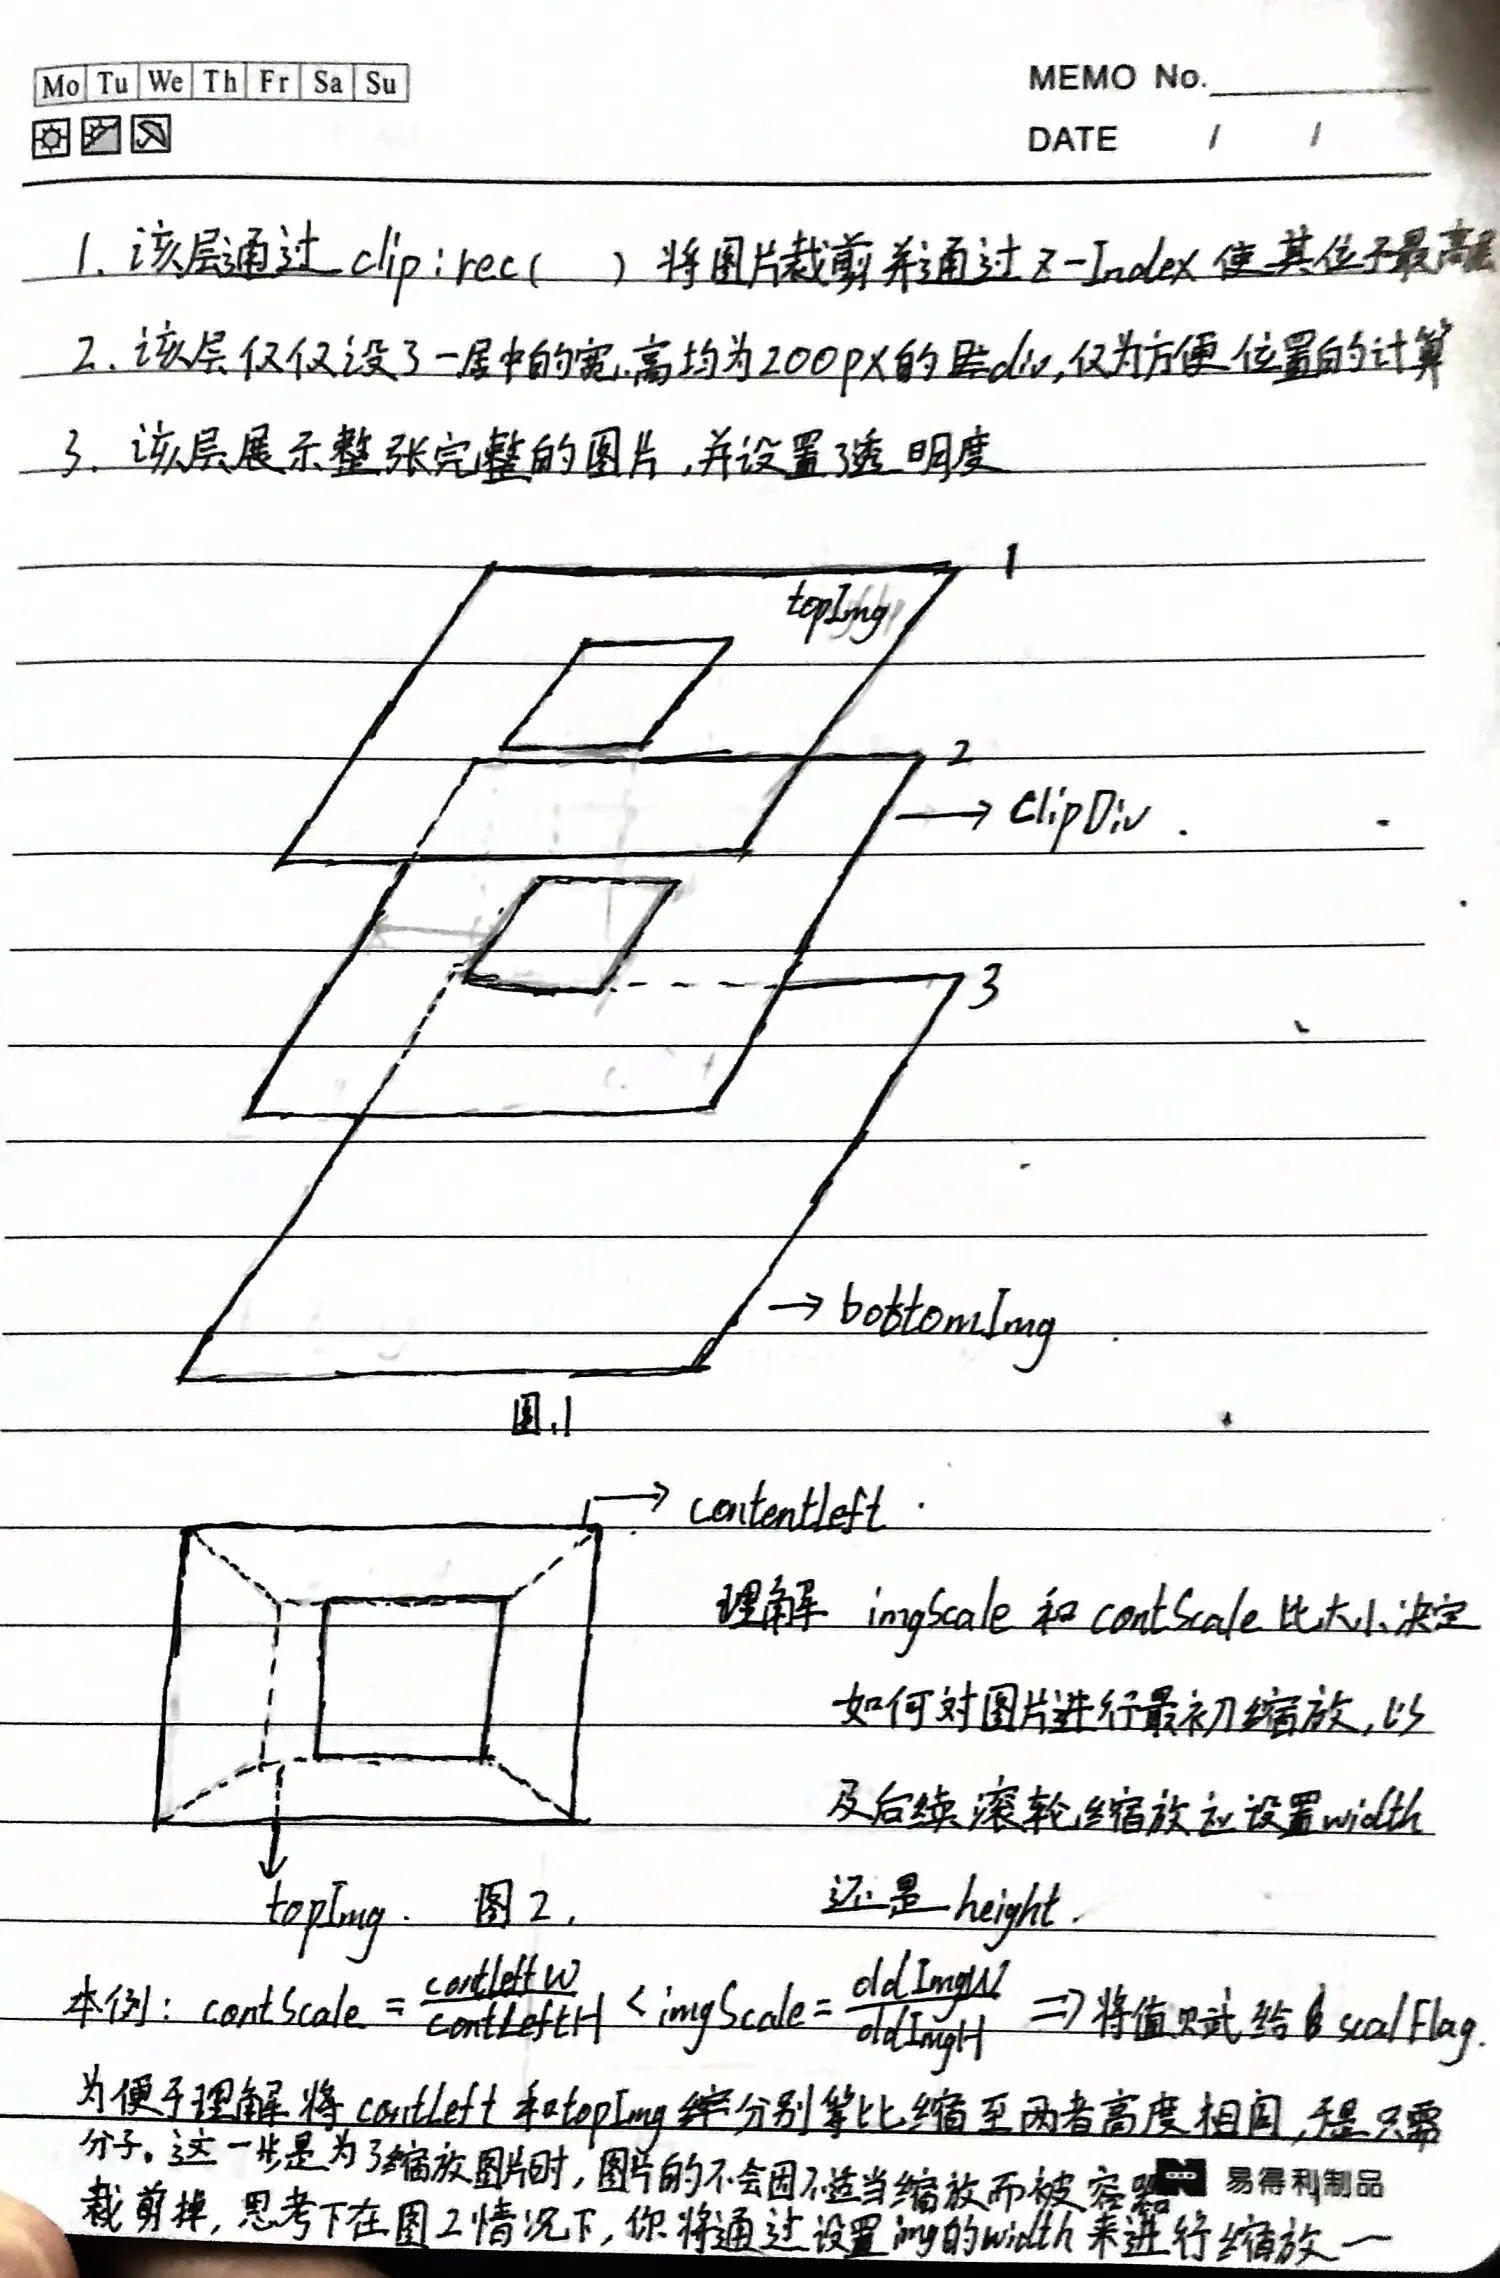 Mo Tu We Th Fr Sa Su
MEMO No.
DATE / /
1. 该层通过 clip:rec( ) 将图片裁剪并通过 z-Index 使其位于最高层
2. 该层仅仅设了一居中的宽、高均为200px的 div,仅为方便位置的计算
3. 该层展示整张完整的图片,并设置了透明度
1
topImg
2
→ ClipDiv
3
→ bottomImg
图.1
→ contentleft
理解 imgScale 和 contScale 比大小决定
如何对图片进行最初缩放,以
及后续滚轮缩放应设置width
还是 height.
topImg. 图2.
本例: contScale = contleftW / contLeftH < imgScale = oldImgW / oldImgH => 将值赋给 scalFlag.
为便于理解将 contLeft 和 topImg 分别等比缩至两者高度相同,于是只需
分子。这一步是为了缩放图片时,图片的不会因不适当缩放而被容器
裁剪掉,思考下在图2情况下,你将通过设置img的width来进行缩放一
易得利制品